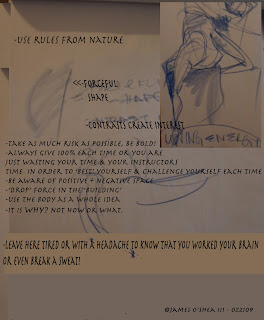 -USE RULES FROM NATURE
<<-FORCEFUL
SHAPE
-CONTRASTS CREATE INTEREST
-TAKE AS MUCH RISK AS POSSIBLE, BE BOLD!
-ALWAYS GIVE 100% EACH TIME OR YOU ARE
JUST WASTING YOUR TIME & YOUR INSTRUCTORS
TIME. IN ORDER TO 'BEST' YOURSELF & CHALLENGE YOURSELF EACH TIME
-BE AWARE OF POSITIVE & NEGATIVE SPACE
-'DROP' FORCE IN THE 'BUILDING'
-USE THE BODY AS A WHOLE IDEA
-IT IS WHY? NOT HOW OR WHAT.
-LEAVE HERE TIRED OR WITH A HEADACHE TO KNOW THAT YOU WORKED YOUR BRAIN
OR EVEN BREAK A SWEAT!
©JAMES O'SHEA III - 022109